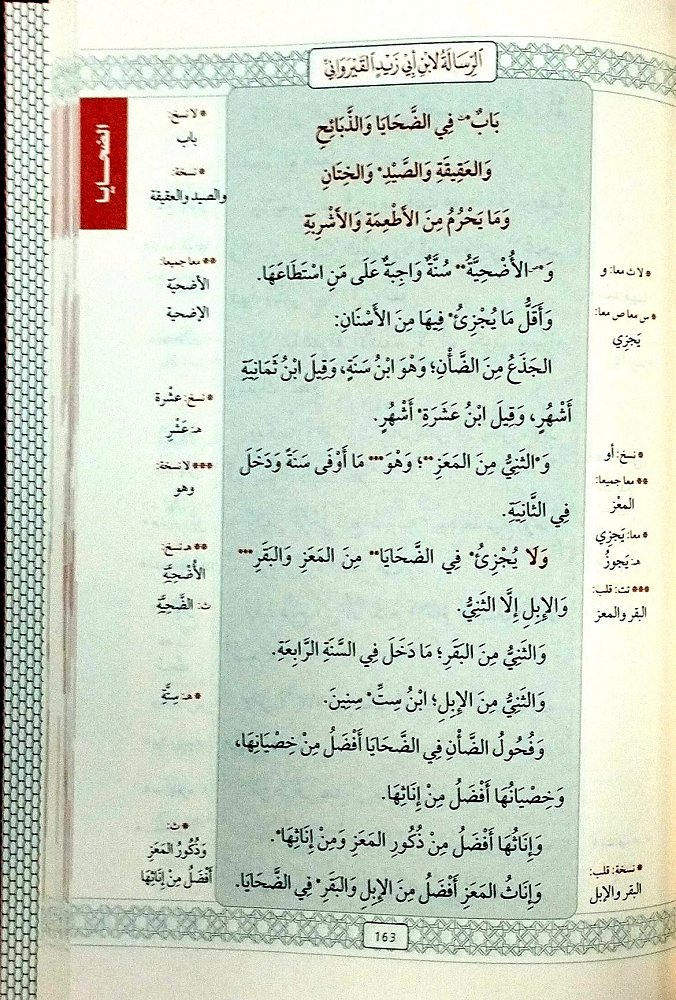 الرِّسَالَةُ لِابْنِ أَبِي زَيْدٍ القَيْرَوَانِيِّ
الضَّحَايا
بَابٌ* فِي الضَّحَايَا وَالذَّبَائِحِ
وَالعَقِيقَةِ وَالصَّيْدِ* وَالخِتَانِ
وَمَا يَحْرُمُ مِنَ الأَطْعِمَةِ وَالأَشْرِبَةِ
وَ*الأُضْحِيَّةُ** سُنَّةٌ وَاجِبَةٌ عَلَى مَنِ اسْتَطَاعَهَا.
وَأَقَلُّ مَا يُجْزِئُ* فِيهَا مِنَ الأَسْنَانِ:
الجَذَعُ مِنَ الضَّأْنِ؛ وَهْوَ ابْنُ سَنَةٍ، وَقِيلَ ابْنُ ثَمَانِيَةِ
أَشْهُرٍ، وَقِيلَ ابْنُ عَشَرَةِ* أَشْهُرٍ.
وَ*الثَنِيُّ مِنَ المَعَزِ**؛ وَهْوَ*** مَا أَوْفَى سَنَةً وَدَخَلَ
فِي الثَّانِيَةِ.
وَلَا يُجْزِئُ* فِي الضَّحَايَا** مِنَ المَعَزِ وَالبَقَرِ***
وَالإِبِلِ إِلَّا الثَنِيُّ.
وَالثَنِيُّ مِنَ البَقَرِ؛ مَا دَخَلَ فِي السَّنَةِ الرَّابِعَةِ.
وَالثَنِيُّ مِنَ الإِبِلِ؛ ابْنُ سِتِّ* سِنِينَ.
وَفُحُولُ الضَّأْنِ فِي الضَّحَايَا أَفْضَلُ مِنْ خِصْيَانِهَا،
وَخِصْيَانُهَا أَفْضَلُ مِنْ إِنَاثِهَا.
وَإِنَاثُهَا أَفْضَلُ مِنْ ذُكُورِ المَعَزِ وَمِنْ إِنَاثِهَا*.
وَإِنَاثُ المَعَزِ أَفْضَلُ مِنَ الإِبِلِ وَالبَقَرِ* فِي الضَّحَايَا.
* لا ث معا: و
* س معا ص معا:
يَجزِي
* نسخ: أو
** معا جميعا:
المعْز
* معا: يَجزِي
هـ: يَجوزُ
*** تت: قلب:
البقر والمعز
* نسخة: قلب:
البقر والإبل
* لا نسخ:
باب
* نسخة:
والصيد والعقيقة
** معا جميعا:
الأضحيّة
الإضحية
* نسخ: عشْرة
هـ: عَشْرِ
*** لا نسخة:
وهو
** هـ نسخ:
الأُضْحِيَّةِ
ث: الضَّحِيَّةِ
* هـ: سِتَّةِ
* ث:
وَذُكُورُ المَعَزِ
أَفْضَلُ مِنْ إِنَاثِهَا
163